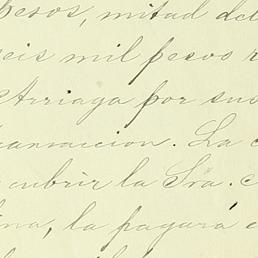 pesos, mitad del
seis mil pesos
Arriaga por sus
transaccion. La
cubrir la Sra.
la pagará